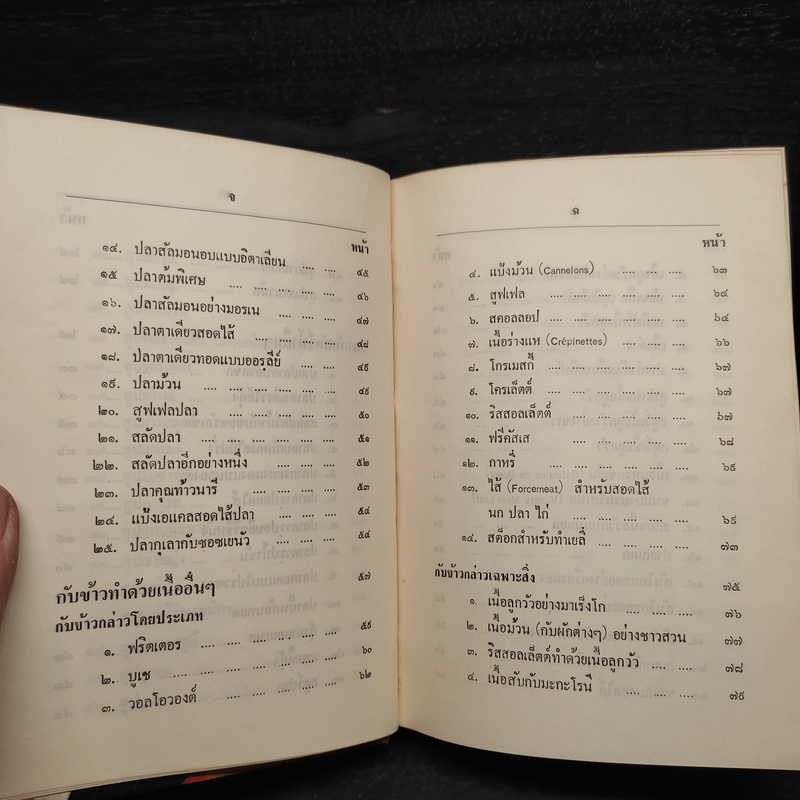 จ
หน้า
๑๔. ปลาสัลมอนอบแบบอิตาเลียน .... .... ๔๕
๑๕ ปลาต้มพิเศษ .... .... .... .... ๔๖
๑๖. ปลาสัลมอนอย่างมอรเน .... .... .... ๔๗
๑๗. ปลาตาเดียวสอดไส้ .... .... .... .... ๔๘
๑๘. ปลาตาเดียวทอดแบบออรฺลีย์ .... .... .... ๔๙
๑๙. ปลาม้วน .... .... .... .... .... ๔๙
๒๐. สูฟเฟลปลา .... .... .... .... ๕๐
๒๑. สลัดปลา .... .... .... .... .... ๕๑
๒๒. สลัดปลาอีกอย่างหนึ่ง .... .... .... ๕๒
๒๓. ปลาคุณท้าวนารี .... .... .... .... ๕๓
๒๔. แป้งเอแคลสอดไส้ปลา .... .... .... ๕๔
๒๕. ปลากุเลากับซอซเยนัว .... .... .... ๕๔
กับข้าวทำด้วยเนื้ออื่นๆ ๕๗
กับข้าวกล่าวโดยประเภท
๑. ฟริตเตอร .... .... .... .... .... ๕๙
๒. บูเช .... .... .... .... .... ๖๐
๓. วอลโอวองต์ .... .... .... .... ๖๒
ฉ
หน้า
๔. แป้งม้วน (Cannelons) .... .... .... ๖๓
๕. สูฟเฟล .... .... .... .... .... .... ๖๔
๖. สคอลลอป .... .... .... .... .... ๖๔
๗. เนื้อร่างแห (Crépinettes) .... .... .... ๖๖
๘. โกรเมสกี้ .... .... .... .... .... ๖๗
๙. โครเล็ตต์ .... .... .... .... .... ๖๗
๑๐. ริสสอลเล็ตต์ .... .... .... .... ๖๗
๑๑. ฟรีคัสเส .... .... .... .... ๖๘
๑๒. กาหรี่ .... .... .... .... .... ๖๙
๑๓. ไส้ (Forcemeat) สำหรับสอดไส้
นก ปลา ไก่ .... .... .... .... .... ๖๙
๑๔. สต็อกสำหรับทำเยลี่ .... .... .... ๗๓
กับข้าวกล่าวเฉพาะสิ่ง ๗๕
๑. เนื้อลูกวัวอย่างมาเร็งโก .... .... .... .... ๗๖
๒. เนื้อม้วน (กับผักต่างๆ) อย่างชาวสวน ๗๗
๓. ริสสอลเล็ตต์ทำด้วยเนื้อลูกวัว .... .... ๗๘
๔. เนื้อสับกับมะกะโรนี .... .... .... ๗๙